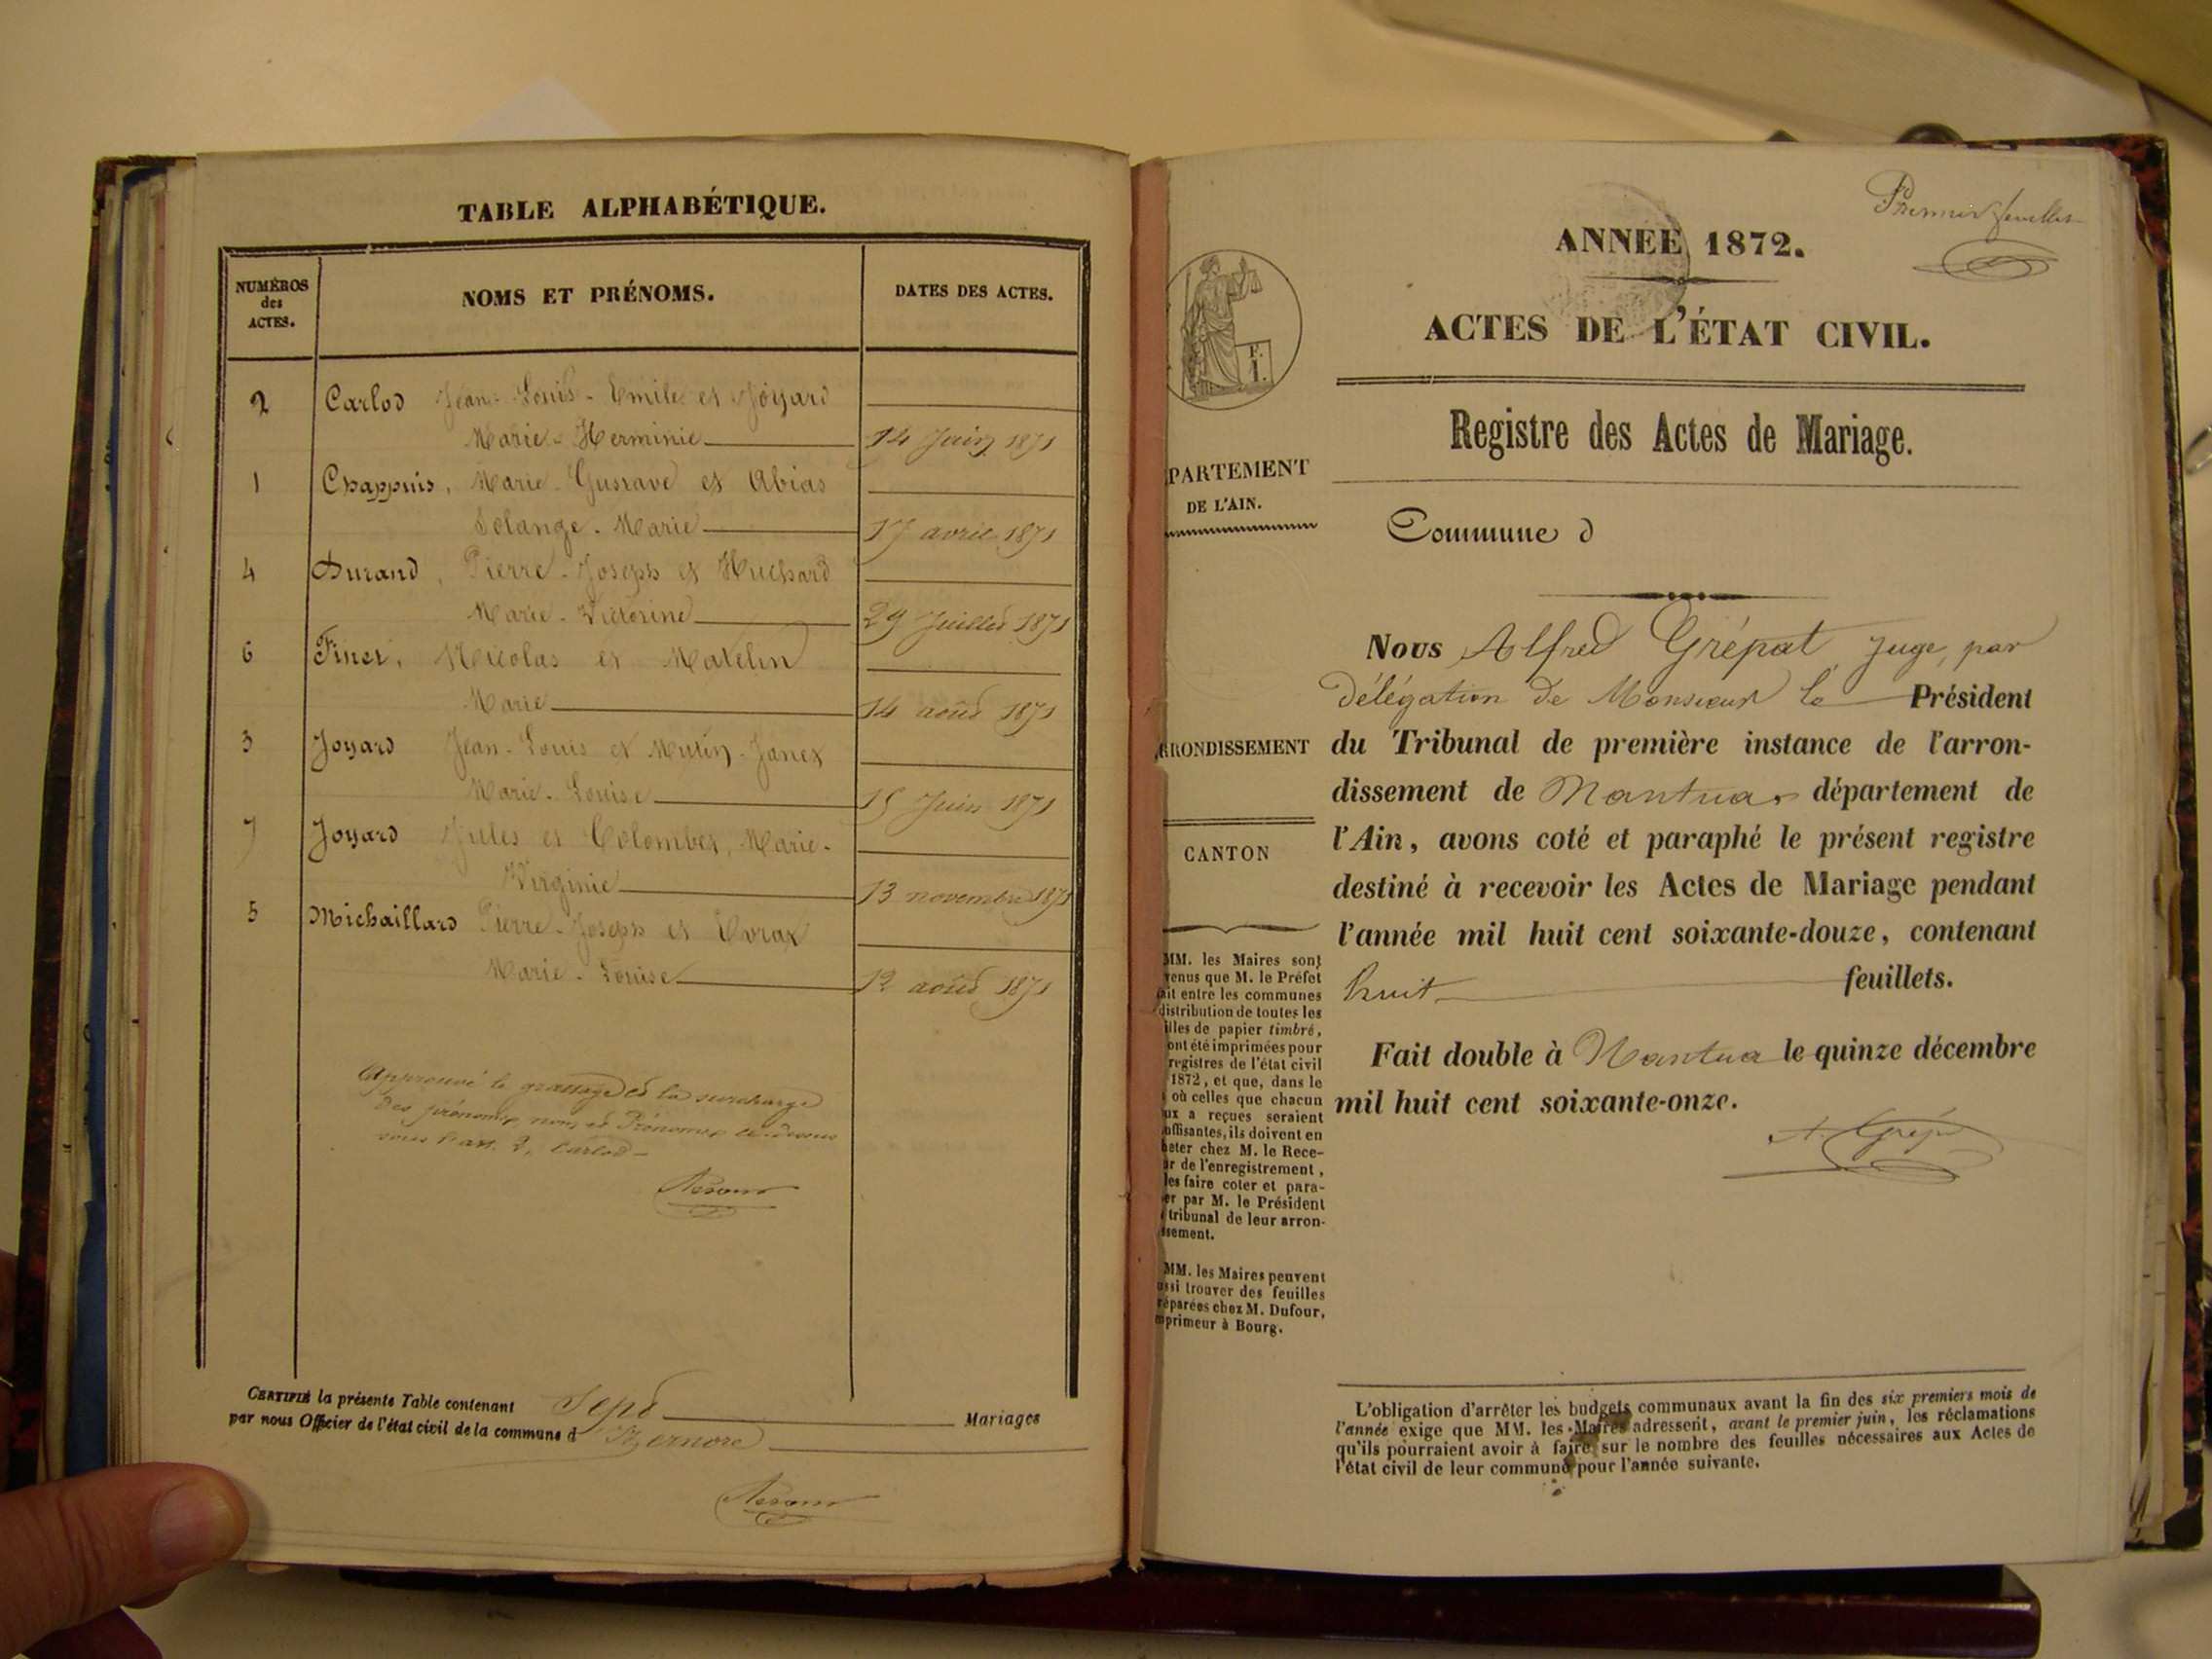 TABLE ALPHABÉTIQUE.
NUMÉROS
des
ACTES.
NOMS ET PRÉNOMS.
DATES DES ACTES.
2 Carlod Jean-Louis-Emile et Joyard
Marie-Herminie 14 Juin 1871
1 Chappuis, Marie-Gustave et Abias
Solange-Marie 17 avril 1871
4 Durand, Pierre-Joseph et Huchard
Marie-Victorine 29 Juillet 1871
6 Finet, Nicolas et Matelin
Marie 14 août 1871
3 Joyard Jean-Louis et Mutin-Janex
Marie-Louise 15 Juin 1871
7 Joyard Jules et Colombet, Marie-
Virginie 13 novembre 1871
5 Michaillard Pierre-Joseph et Evrax
Marie-Louise 12 août 1871
Approuvé le grattage et la surcharge
des prénoms, nom et Prénoms ci-dessus
sous l'art. 2, Carlod-
CERTIFIÉ la présente Table contenant Sept Mariages
par nous Officier de l'état civil de la commune d'Izernore
Premier feuillet
ANNÉE 1872.
ACTES DE L'ÉTAT CIVIL.
Registre des Actes de Mariage.
PARTEMENT
DE L'AIN.
Commune d
Nous Alfred Grépat Juge, par
délégation de Monsieur le Président
du Tribunal de première instance de l'arron-
dissement de Nantua, département de
l'Ain, avons coté et paraphé le présent registre
destiné à recevoir les Actes de Mariage pendant
l'année mil huit cent soixante-douze, contenant
huit feuillets.
Fait double à Nantua le quinze décembre
mil huit cent soixante-onze.
A. Grép
F.
1.
RRONDISSEMENT
CANTON
MM. les Maires sont
venus que M. le Préfet
ait entre les communes
distribution de toutes les
illes de papier timbré,
ont été imprimées pour
registres de l'état civil
1872, et que, dans le
où celles que chacun
ux a reçues seraient
uffisantes, ils doivent en
heter chez M. le Rece-
ur de l'enregistrement,
les faire coter et para-
er par M. le Président
tribunal de leur arron-
ssement.
MM. les Maires peuvent
ussi trouver des feuilles
réparées chez M. Dufour,
mprimeur à Bourg.
L'obligation d'arrêter les budgets communaux avant la fin des six premiers mois de
l'année exige que MM. les Maires adressent, avant le premier juin, les réclamations
qu'ils pourraient avoir à faire sur le nombre des feuilles nécessaires aux Actes de
l'état civil de leur commune pour l'année suivante.